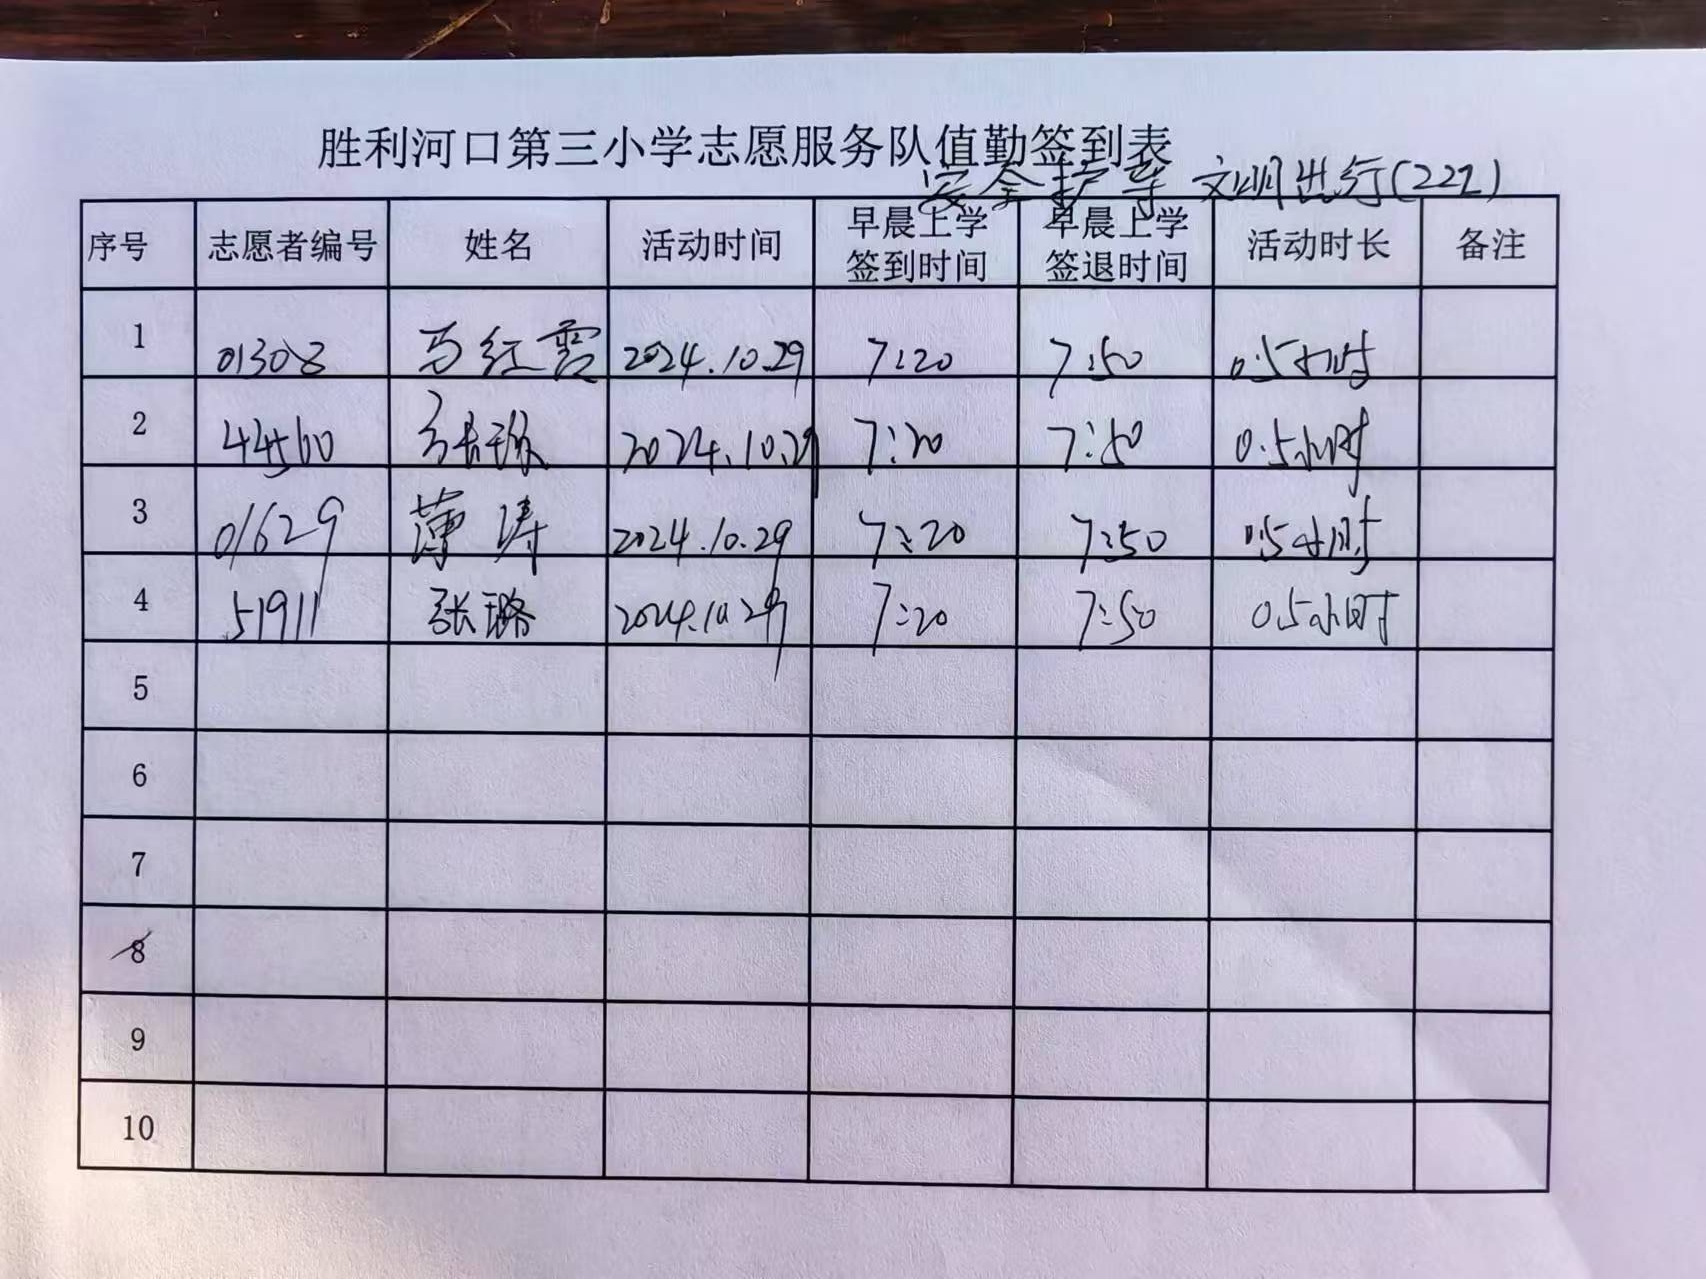 胜利河口第三小学志愿服务队值勤签到表
安全护学 文明出行(221)
序号 志愿者编号 姓名 活动时间 早晨上学签到时间 早晨上学签退时间 活动时长 备注
1 01308 马红霞 2024.10.29 7:20 7:50 0.5小时
2 44560 2024.10.29 7:20 7:50 0.5小时
3 01629 薄涛 2024.10.29 7:20 7:50 0.5小时
4 51911 张璐 2024.10.29 7:20 7:50 0.5小时
5
6
7
8
9
10